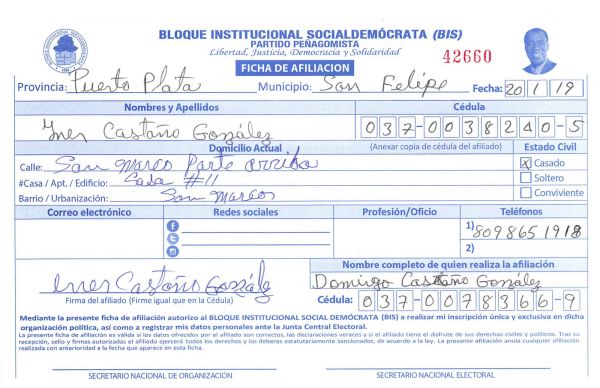 BLOQUE INSTITUCIONAL SOCIALDEMÓCRATA (BIS)
PARTIDO PEÑAGOMISTA
Libertad, Justicia, Democracia y Solidaridad
42660
FICHA DE AFILIACION
Provincia: Puerto Plata Municipio: San Felipe Fecha: 20 1 19
Nombres y Apellidos Cédula
Ines Castaño González 037-0038240-5
Domicilio Actual (Anexar copia de cédula del afiliado) Estado Civil
Calle: San Marco Parte arriba X Casado
#Casa / Apt. / Edificio: Casa #11 Soltero
Barrio / Urbanización: San Marcos Conviviente
Correo electrónico Redes sociales Profesión/Oficio Teléfonos
1) 8098651918
2)
Nombre completo de quien realiza la afiliación
Ines Castaño González Domingo Castaño González
Firma del afiliado (Firme igual que en la Cédula) Cédula: 037-0078366-9
Mediante la presente ficha de afiliación autorizo al BLOQUE INSTITUCIONAL SOCIAL DEMÓCRATA (BIS) a realizar mi inscripción única y exclusiva en dicha
organización política, así como a registrar mis datos personales ante la Junta Central Electoral.
La presente ficha de afiliación es válida si los datos ofrecidos por el afiliado son correctos, las declaraciones veraces y si el afiliado tiene el disfrute de sus derechos civiles y políticos. Tras su
recepción, sello y firmas autorizadas el afiliado ejercerá todos los derechos y los deberes estatutariamente sancionados, de acuerdo a la ley. La presente afiliación anula cualquier afiliación
realizada con anterioridad a la fecha que aparece en esta ficha.
SECRETARIO NACIONAL DE ORGANIZACIÓN SECRETARIO NACIONAL ELECTORAL